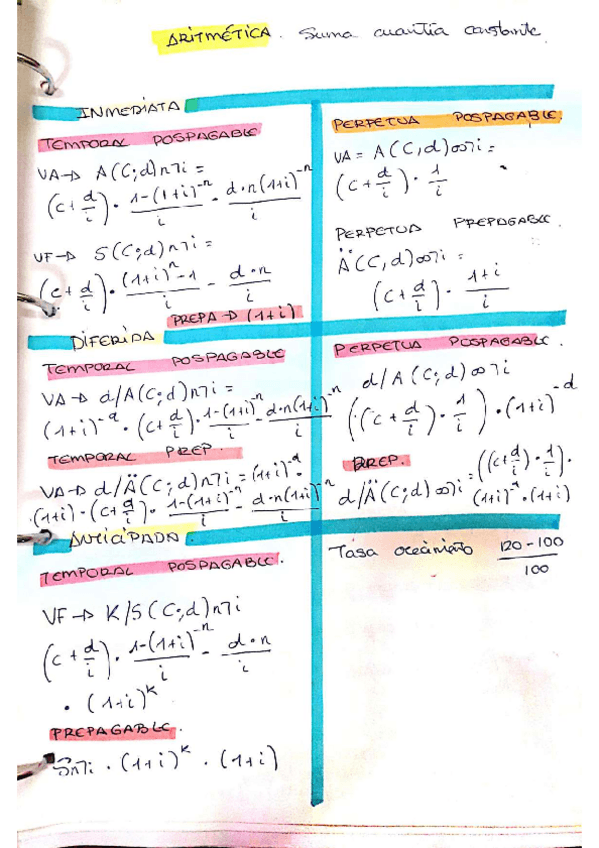 ARITMÉTICA. Suma cuantía constante.
INMEDIATA
TEMPORAL POSPAGABLE
VA→ A(C;d)n¬i =
(c+d/i) · 1-(1+i)^-n/i - d·n(1+i)^-n/i
VF→ S(C;d)n¬i =
(c+d/i) · (1+i)^n-1/i - d·n/i
PREPA → (1+i)
PERPETUA POSPAGABLE.
VA = A(C,d)∞¬i =
(c+d/i) · 1/i
PERPETUA PREPAGABLE.
Ä(C,d)∞¬i =
(c+d/i) · 1+i/i
DIFERIDA
TEMPORAL POSPAGABLE
VA→ d/A(C;d)n¬i =
(1+i)^-d · (c+d/i) · 1-(1+i)^-n/i - d·n(1+i)^-n/i
TEMPORAL PREP.
VA→ d/Ä(C;d)n¬i = (1+i)^-d
·(1+i) · (c+d/i) · 1-(1+i)^-n/i - d·n(1+i)^-n/i
PERPETUA POSPAGABLE.
d/A(C;d)∞¬i
((c+d/i) · 1/i) · (1+i)^-d
PREP.
d/Ä(C;d)∞¬i = ((c+d/i) · 1/i) ·
(1+i)^-d · (1+i)
ANTICIPADA.
TEMPORAL POSPAGABLE.
VF→ K/S(C;d)n¬i
(c+d/i) · 1-(1+i)^-n/i - d·n/i
· (1+i)^k
PREPAGABLE.
S̈n¬i · (1+i)^k · (1+i)
Tasa 120-100/100